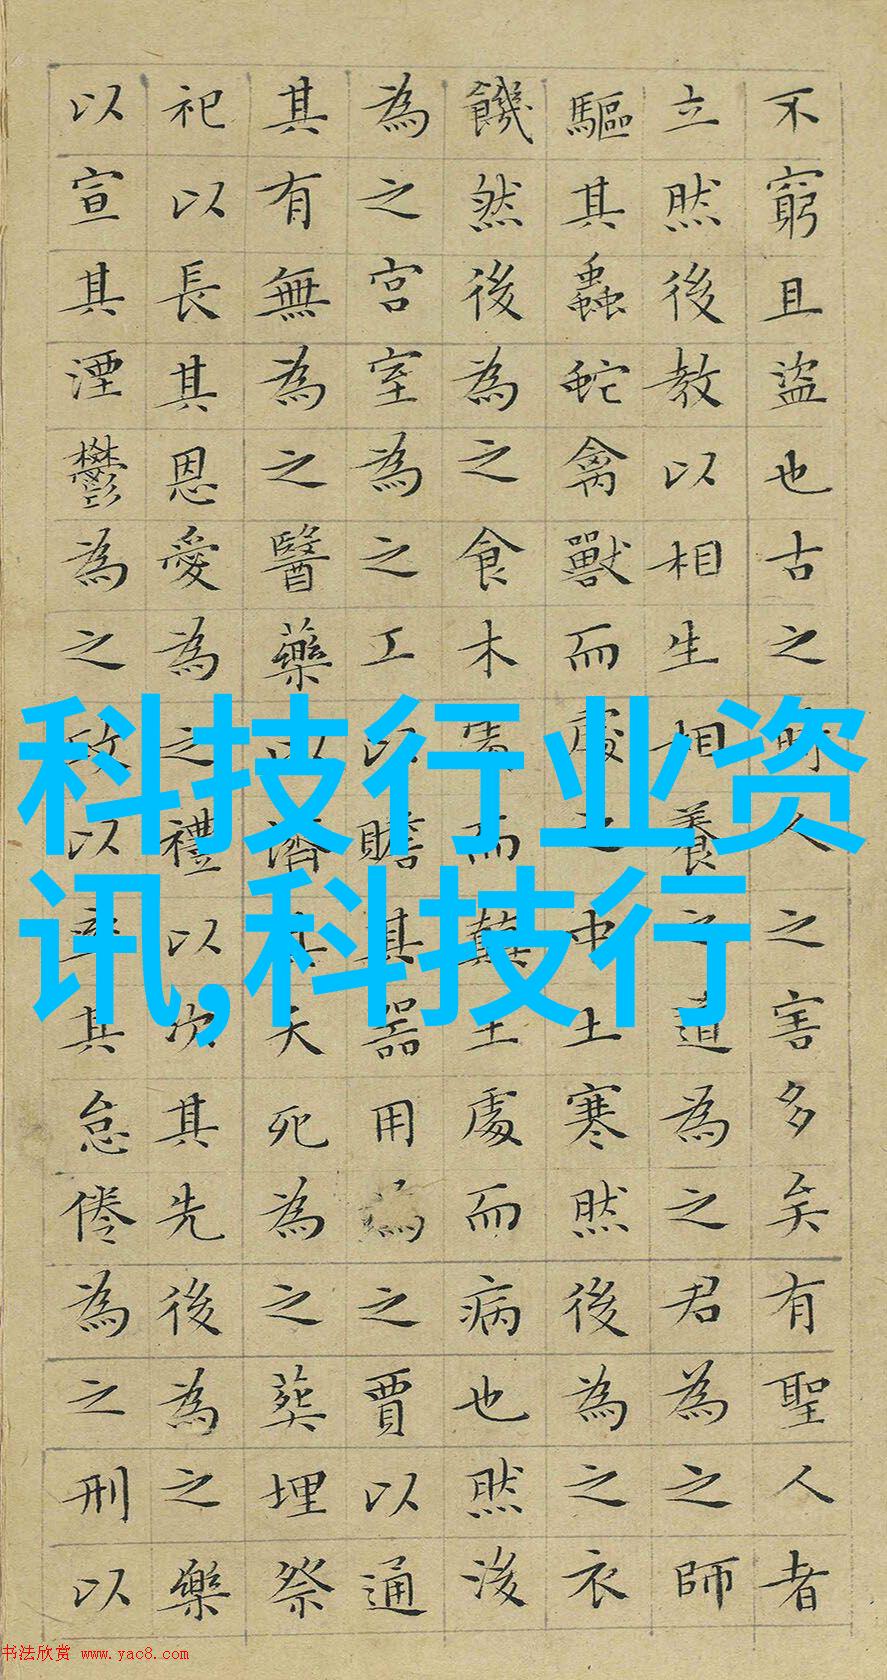 不窮且盜也古之時人之害多矣有聖人者
立然後教以相生相養之道為之君為之師
驅其蟲蛇禽獸而處之中土寒然後為之衣
饑然後為之食木處而顛土處而病也然後
為之宮室為之工以贍其器用為之賈以通
其有無為之醫藥以濟其夭死為之葬埋祭
祀以長其恩愛為之禮以次其先後為之樂
以宣其湮鬱為之政以率其怠倦為之刑以
科技行业资
讯,科技行
书法欣赏 www.yac8.com